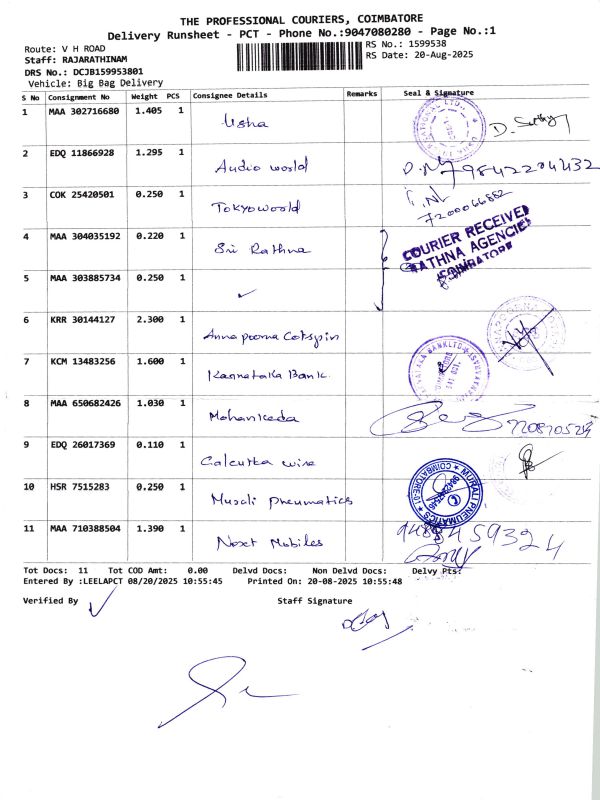 THE PROFESSIONAL COURIERS, COIMBATORE
Delivery Runsheet - PCT - Phone No.:9047080280 - Page No.:1
Route: V H ROAD
RS No.: 1599538
Staff: RAJARATHINAM
RS Date: 20-Aug-2025
DRS No.: DCJB159953801
Vehicle: Big Bag Delivery
S No Consignment No Weight PCS Consignee Details Remarks Seal & Signature
1 MAA 302716680 1.405 1 Usha
2 EDQ 11866928 1.295 1 Audio world
3 COK 25420501 0.250 1 Tokyo world
7200066882
4 MAA 304035192 0.220 1 Sri Rathna
COURIER RECEIVED
RATHNA AGENCIES
COIMBATORE
5 MAA 303885734 0.250 1
6 KRR 30144127 2.300 1 Annapoorna Cotspin
7 KCM 13483256 1.600 1 Karnataka Bank.
8 MAA 650682426 1.030 1 Mohankeda
9 EDQ 26017369 0.110 1 Calcutta wire
10 HSR 7515283 0.250 1 Murali Pneumatics
MURALI PNEUMATICS
COIMBATORE-01
11 MAA 710388504 1.390 1 Next Mobiles
Tot Docs: 11 Tot COD Amt: 0.00 Delvd Docs: Non Delvd Docs: Delvy Pts:
Entered By :LEELAPCT 08/20/2025 10:55:45 Printed On: 20-08-2025 10:55:48
Verified By Staff Signature